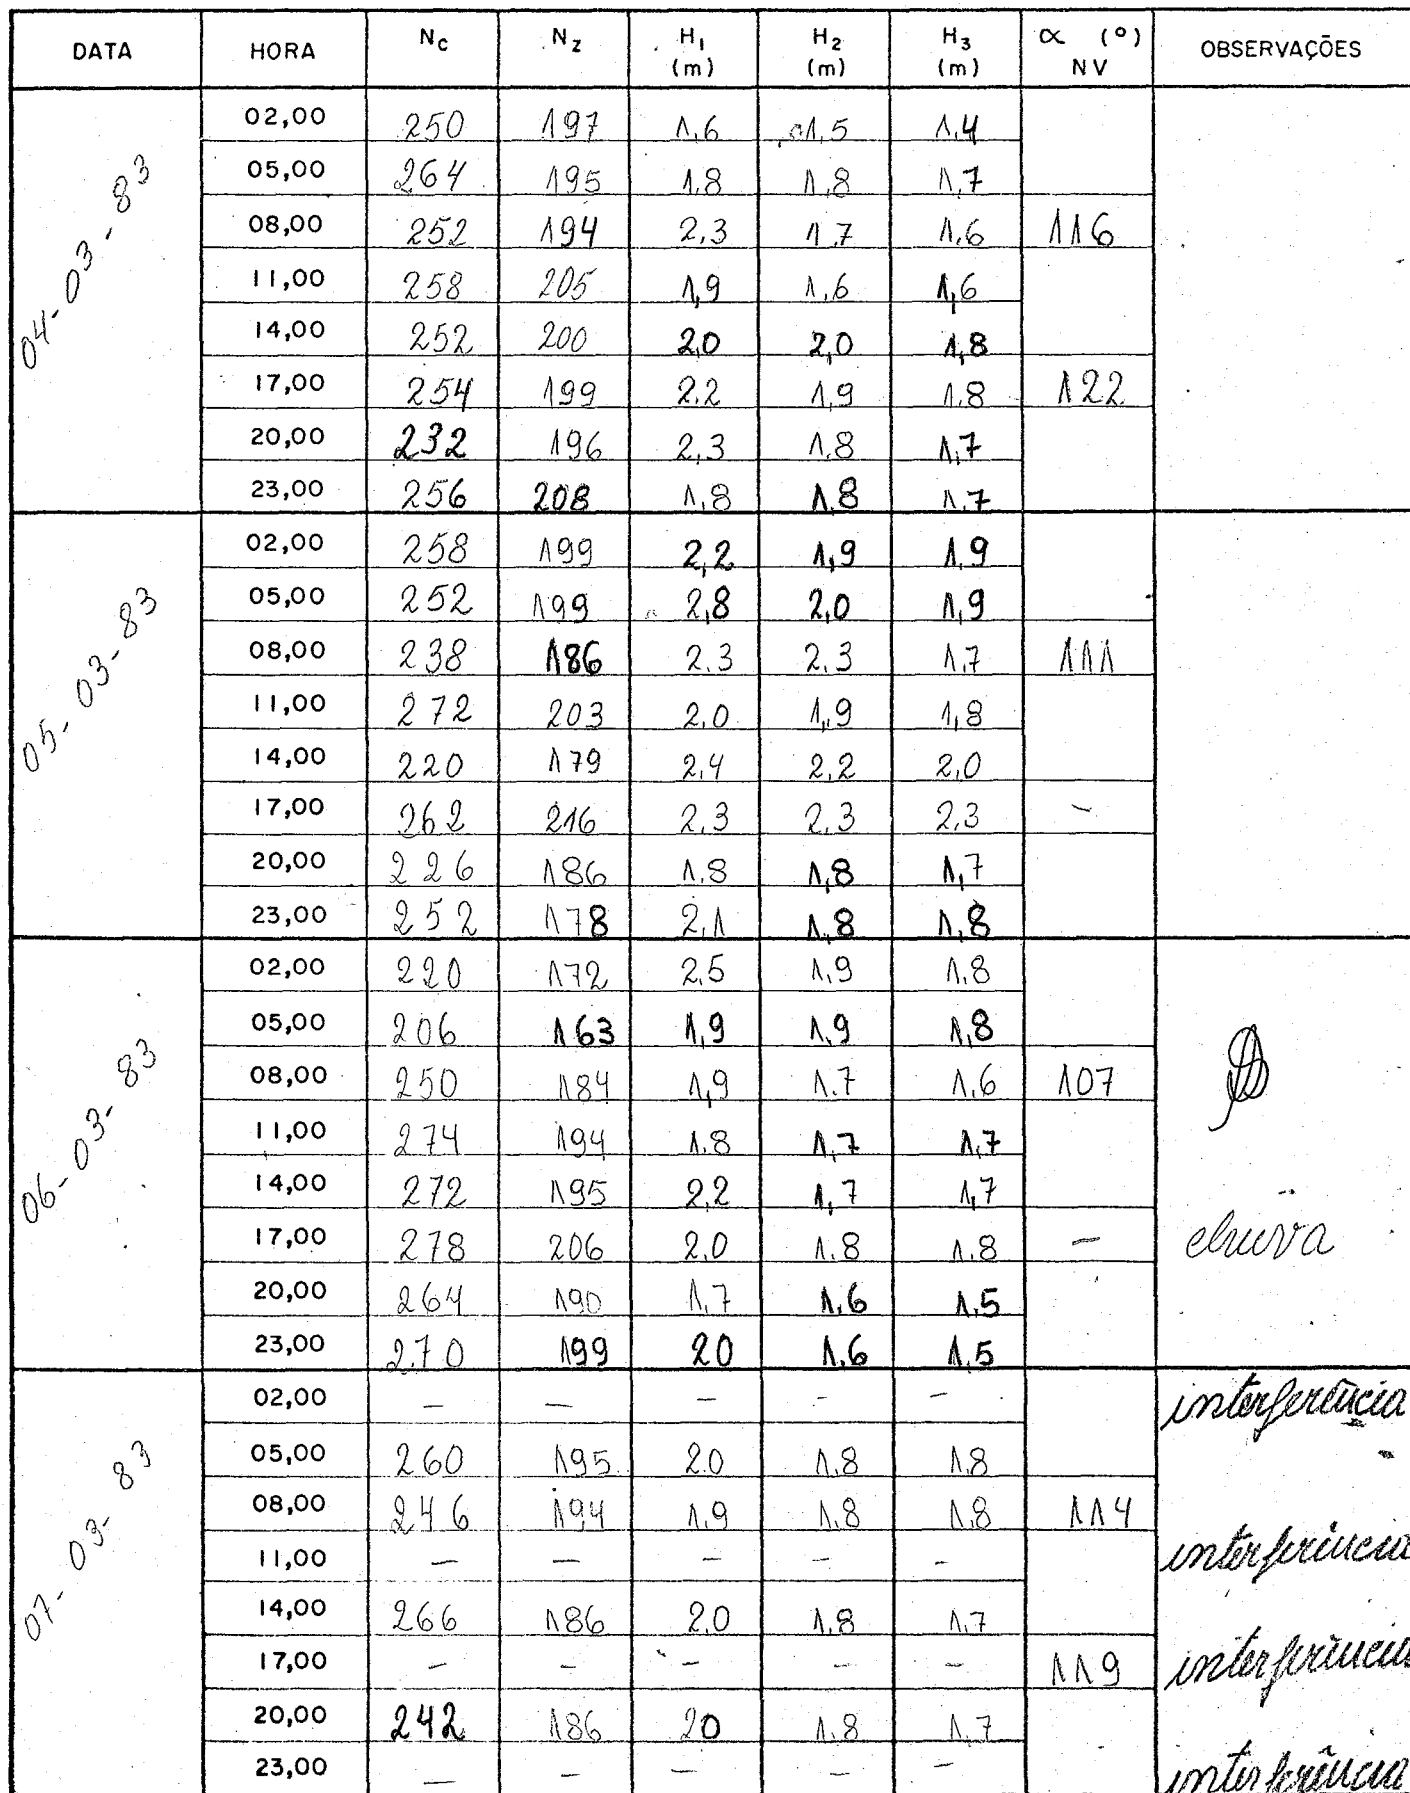 DATA HORA Nc Nz H1 (m) H2 (m) H3 (m) α (°) NV OBSERVAÇÕES
04-03-83
02,00 250 197 1,6 1,5 1,4
05,00 264 195 1,8 1,8 1,7
08,00 252 194 2,3 1,7 1,6 116
11,00 258 205 1,9 1,6 1,6
14,00 252 200 2,0 2,0 1,8
17,00 254 199 2,2 1,9 1,8 122
20,00 232 196 2,3 1,8 1,7
23,00 256 208 1,8 1,8 1,7
05-03-83
02,00 258 199 2,2 1,9 1,9
05,00 252 199 2,8 2,0 1,9
08,00 238 186 2,3 2,3 1,7 111
11,00 272 203 2,0 1,9 1,8
14,00 220 179 2,4 2,2 2,0
17,00 262 216 2,3 2,3 2,3 -
20,00 226 186 1,8 1,8 1,7
23,00 252 178 2,1 1,8 1,8
06-03-83
02,00 220 172 2,5 1,9 1,8
05,00 206 163 1,9 1,9 1,8
08,00 250 184 1,9 1,7 1,6 107
11,00 274 194 1,8 1,7 1,7
14,00 272 195 2,2 1,7 1,7
17,00 278 206 2,0 1,8 1,8 - chuva
20,00 264 190 1,7 1,6 1,5
23,00 270 199 20 1,6 1,5
07-03-83
02,00 - - - - - interferência
05,00 260 195 20 1,8 1,8
08,00 246 194 1,9 1,8 1,8 114
11,00 - - - - - interferência
14,00 266 186 2,0 1,8 1,7
17,00 - - - - - 119 interferência
20,00 242 186 20 1,8 1,7
23,00 - - - - - interferência